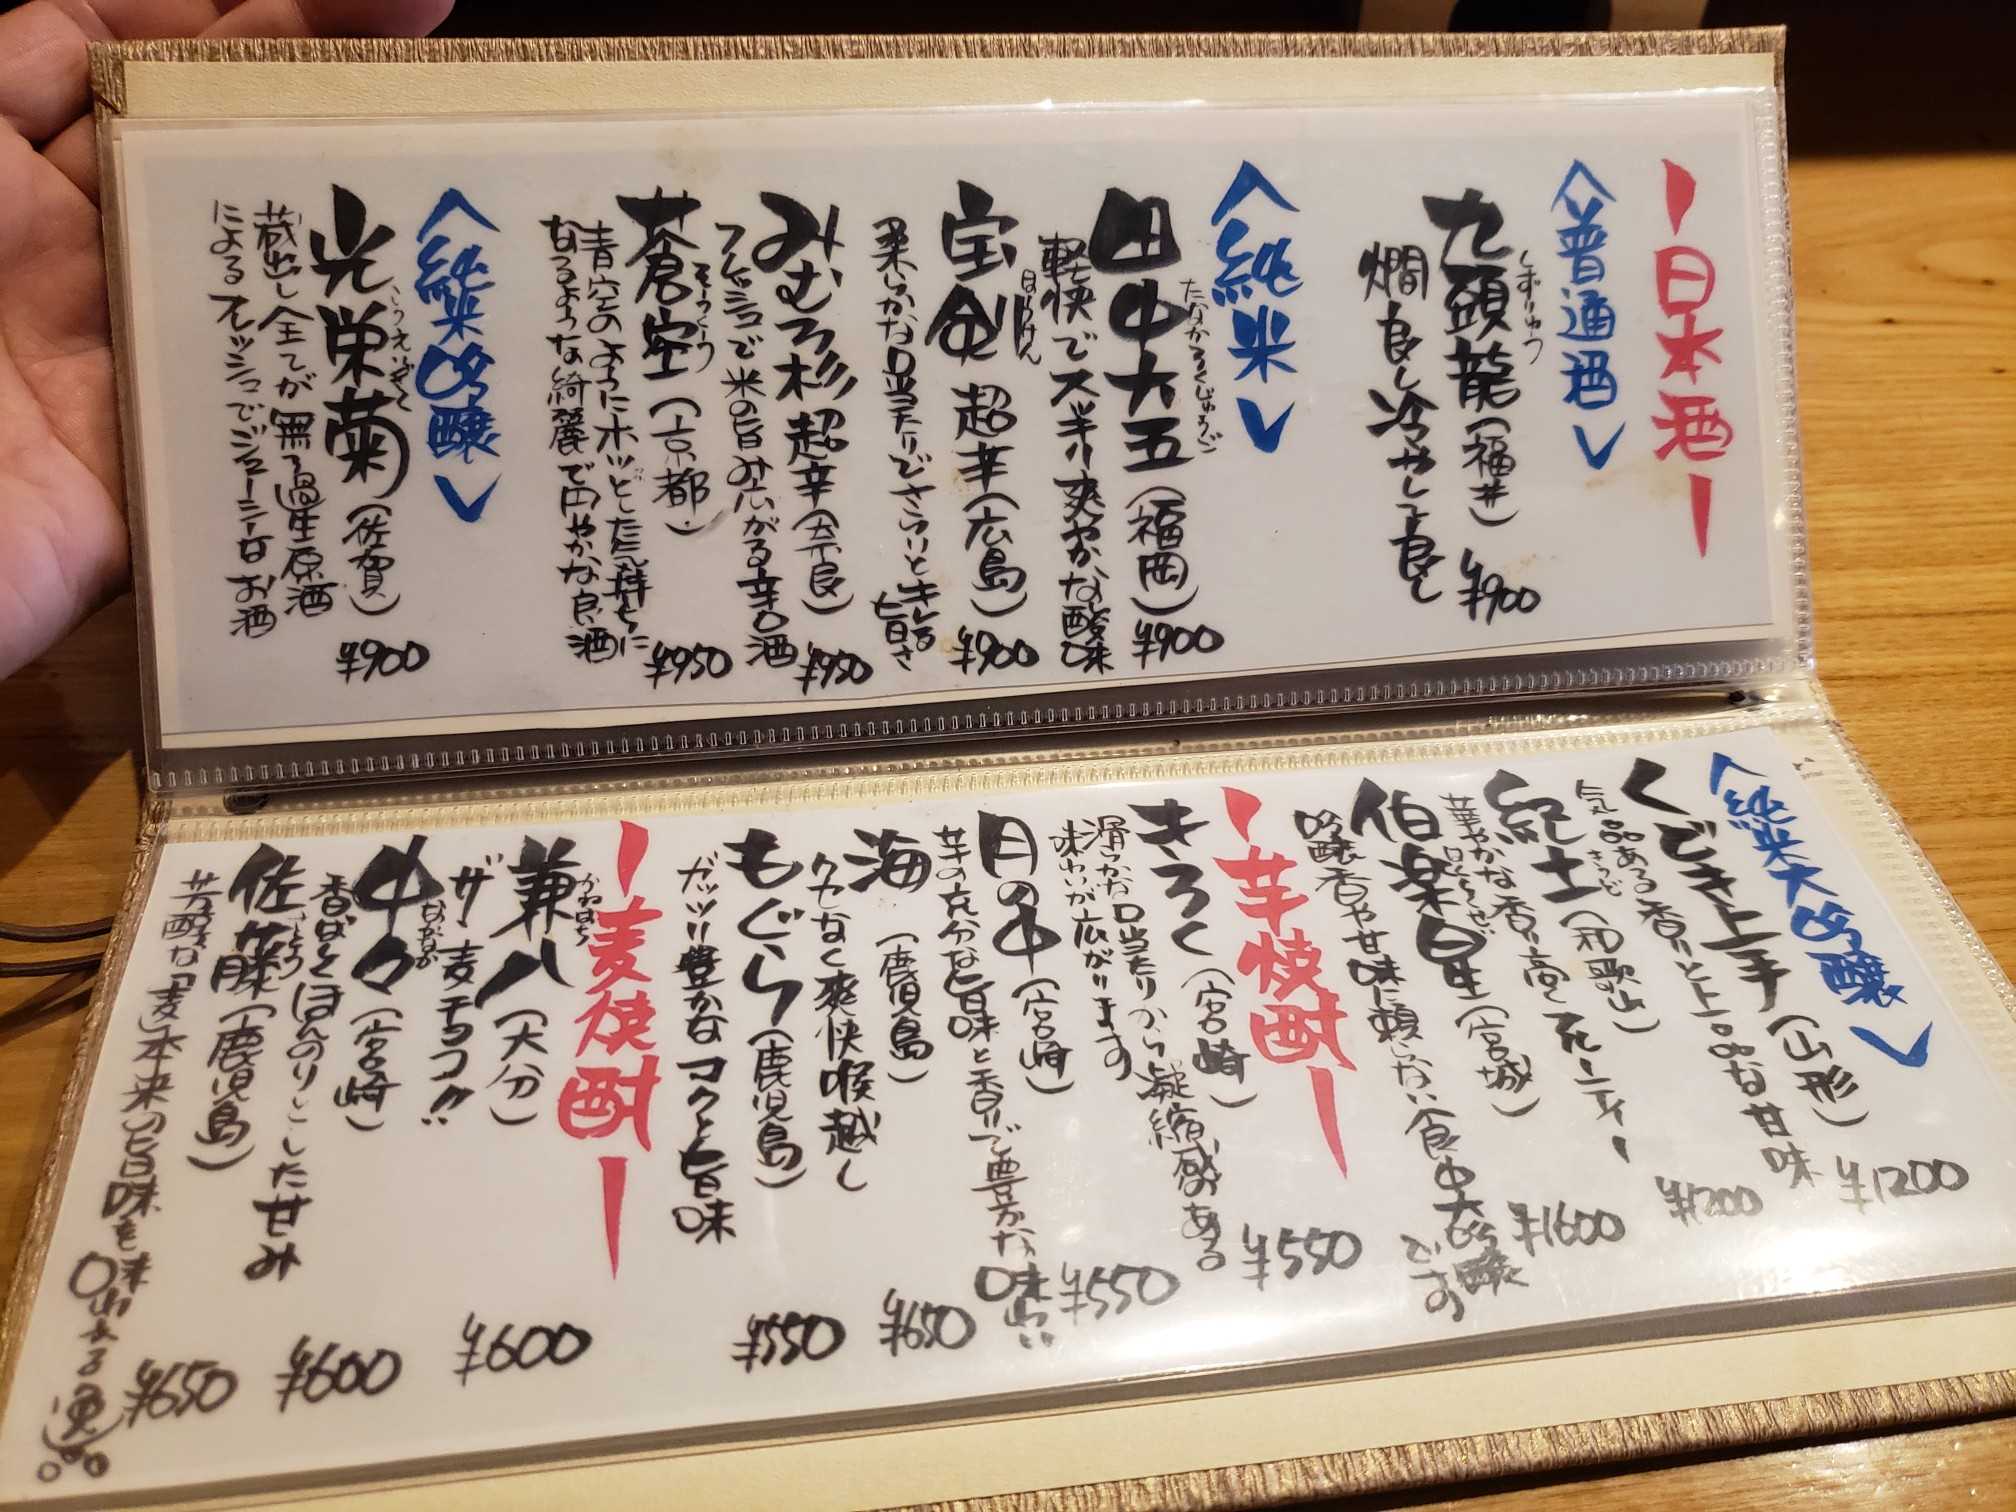 日本酒
〈普通酒〉
九頭龍(福井) ¥900
燗良し冷やして良し
〈純米〉
田中六五(福岡) ¥900
たなかろくじゅうご
軽快でスッキリ爽やかな酸味
宝剣 超辛(広島) ¥900
ほうけん
柔らかな口当たりでさらりとキレる旨さ
みむろ杉 超辛(奈良) ¥950
フレッシュで米の旨み広がる辛口酒
蒼空(京都) ¥950
そうくう
青空のようにホッとした気持ちに
なるような綺麗で円やかな良酒
〈純米吟醸〉
光栄菊(佐賀) ¥900
こうえいぎく
蔵出し全てが無ろ過生原酒
によるフレッシュでジューシーなお酒
〈純米大吟醸〉
くどき上手(山形) ¥1200
気品ある香りと上品な甘味
紀土(和歌山) ¥1200
きっど
華やかな香り高くフルーティー
伯楽星(宮城) ¥1600
はくらくせい
吟醸香や甘味に頼らない食中大吟醸
です
芋焼酎
きろく(宮崎) ¥550
滑らかな口当たりから凝縮感のある
味わいが広がります
月の中(宮崎) ¥550
芋の充分な旨味と香りで豊かな味わい
海(鹿児島) ¥650
クセなく爽快喉越し
もぐら(鹿児島) ¥550
ガッツリ豊かなコクと旨味
麦焼酎
兼八(大分) ¥600
かねはち
ザ・麦チョコ!!
中々(宮崎) ¥600
なかなか
香ばしくほんのりとした甘み
佐藤(鹿児島) ¥650
さとう
芳醇な「麦」本来の旨味を